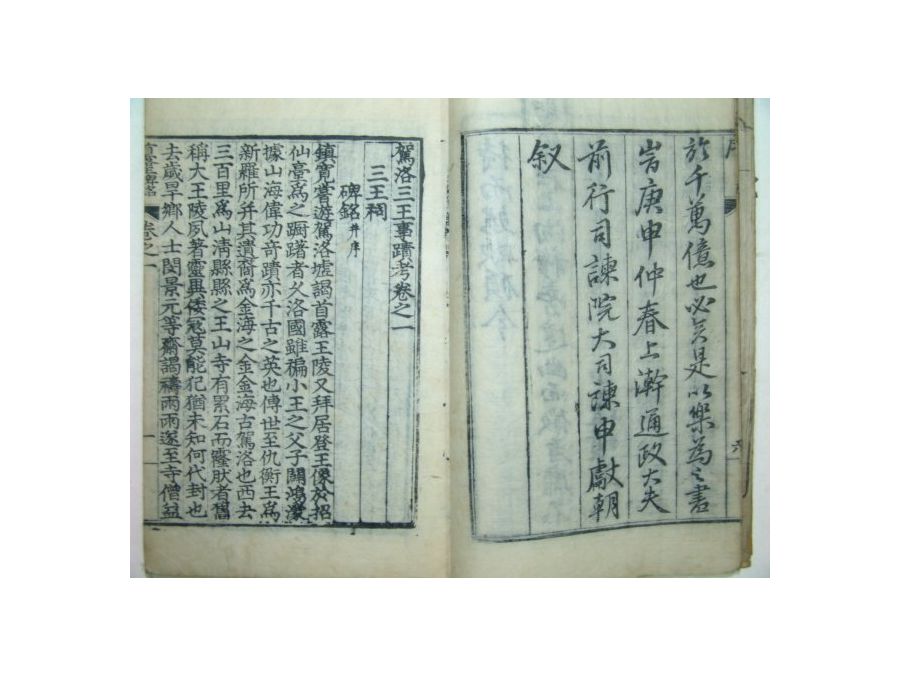 於千萬億也必矣是以樂為之書
峕庚申仲春上澣通政大夫
前行司諫院大司諫申獻朝
叙
六
駕洛三王事蹟考卷之一
三王祠
碑銘并序
鎮寬嘗遊駕洛墟謁首露王陵又拜居登王像於招
仙臺爲之踟躇者久洛國雖褊小王之父子闢鴻濛
據山海偉功奇蹟亦千古之英也傳世至仇衡王爲
新羅所并其遺裔爲金海之金金海古駕洛也西去
三百里爲山淸縣縣之王山寺有累石而壟狀者相
稱大王陵夙著靈異倭寇莫能犯猶未知何代封也
去歲旱鄉人士閔景元等齋謁禱雨雨遂至寺僧益
卷之一
一